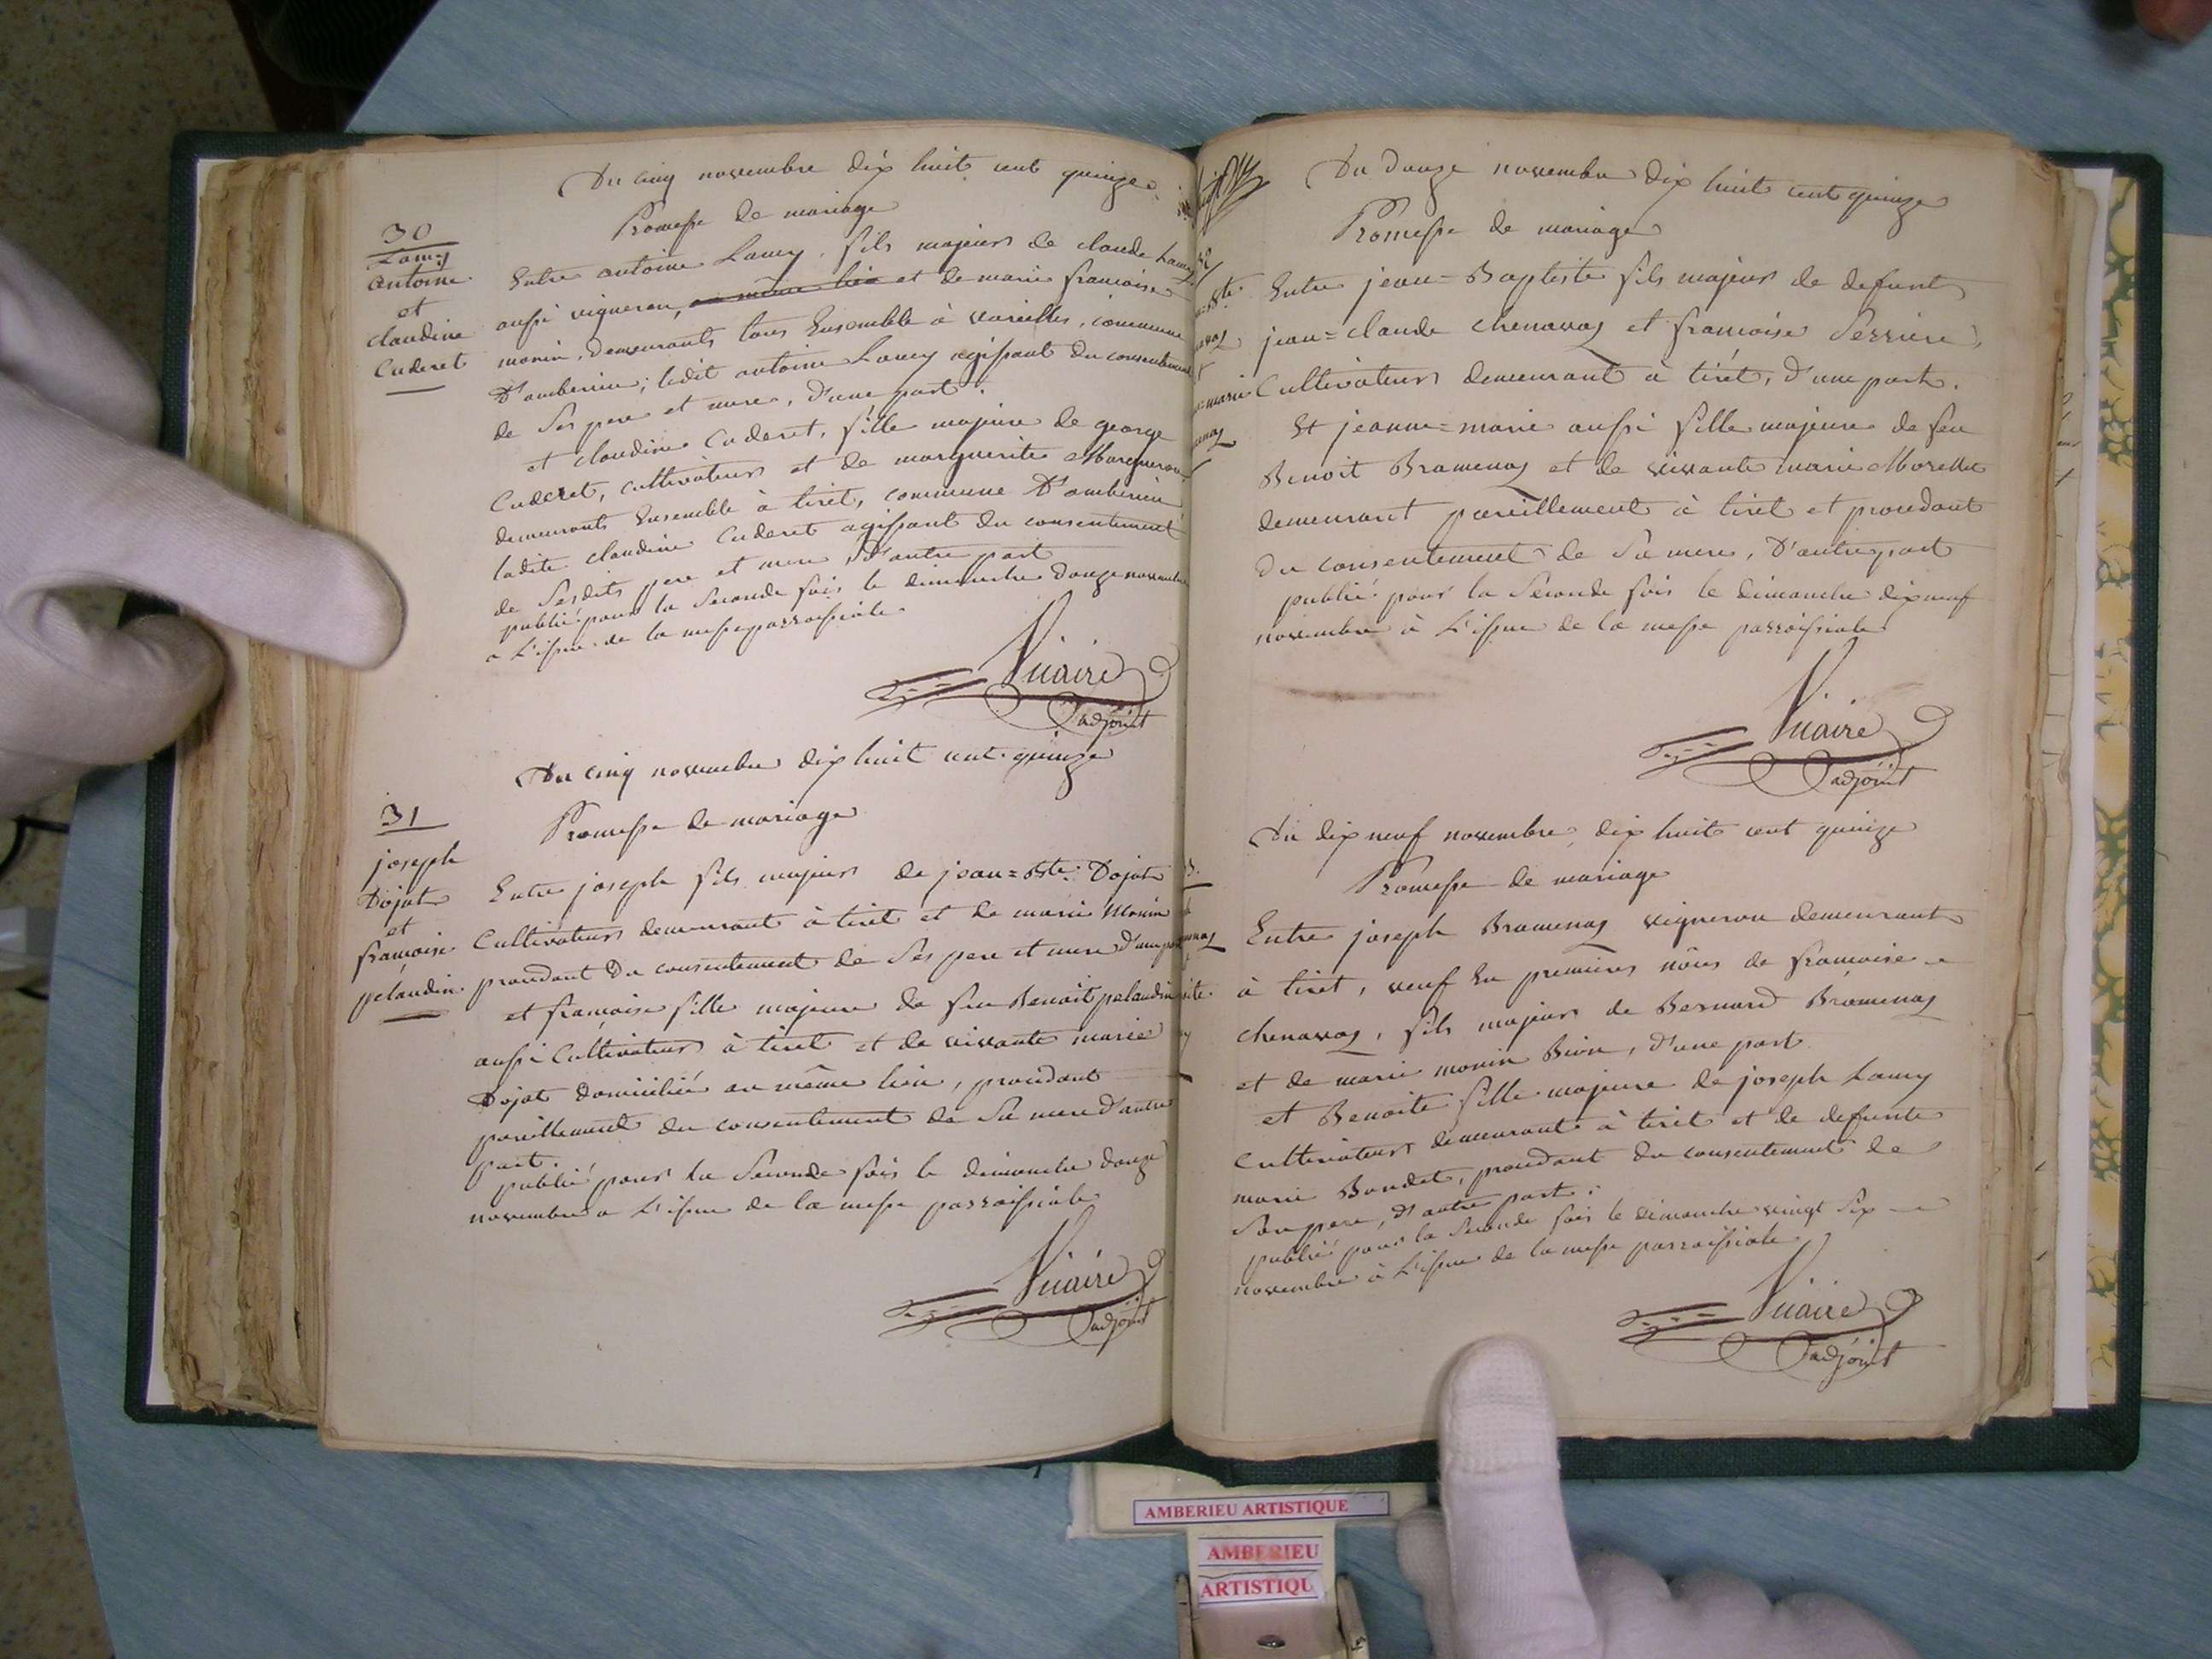 Du cinq novembre dix huit cent quinze
Promesse de mariage
30
Lamy
antoine
et
claudine
Cuderet
Entre antoine Lamy, fils majeur de claude Lamy
aussi vigneron, au même lieu et de marie françoise
monin, demeurants tous Ensemble à vareilles, commune
D'amberieu; ledit antoine Lamy agissant du consentement
de Ses pere et mere, d'une part.
et claudine Cuderet, fille majeure de george
Cuderet, cultivateur et de marguerite
demeurants Ensemble à tiret, commune D'amberieu
ladite claudine Cuderet agissant du consentement
de Sesdits pere et mere d'autre part
publié pour la Seconde fois le dimanche douze novembre
a L'issue de la messe parroissiale.
Vuaire
adjoint
Du cinq novembre dix huit cent quinze
Promesse de mariage
31
joseph
Dojat
et
françoise
pelaudin
Entre joseph fils majeur de jean=Bte Dojat
Cultivateur demeurant à tiret et de marie Monin
procedant Du consentement de Ses pere et mere d'une part
et françoise fille majeure de feu Benoit pelaudin
aussi Cultivateur à tiret et de vivante marie
Dojat domiciliée au même lieu, procedant
pareillement du consentement de Sa mere d'autre
part.
publié pour la Seconde fois le dimanche douze
novembre a L'issue de la messe parroissiale
Vuaire
adjoint
Du Douze novembre dix huit cent quinze
Promesse de mariage
Entre jean=Baptiste fils majeur de defunt
jean=claude chenavas et françoise Perriere,
Cultivateur demeurant à tiret, d'une part.
Et jeanne=marie aussi fille majeure de feu
Benoit Bramenas et de vivante marie Morellet
demeurant pareillement à tiret et procedant
du consentement de Sa mere, D'autre part
publié pour la Seconde fois le dimanche dix neuf
novembre à L'issue de la messe parroissiale
Vuaire
adjoint
Du dix neuf novembre dix huit cent quinze
Promesse de mariage
Entre joseph Bramenas vigneron demeurant
à tiret, veuf En premieres nôces de françoise
chenavas, fils majeur de Bernard Bramenas
et de marie monin Bion, d'une part
et Benoite fille majeure de joseph Lamy
Cultivateur demeurant à tiret et de defunte
marie Bondet, procedant du consentement de
Son pere, d'autre part.
publié pour la Seconde fois le dimanche vingt Six
novembre à L'issue de la messe parroissiale
Vuaire
adjoint
AMBERIEU ARTISTIQUE
AMBERIEU
ARTISTIQU